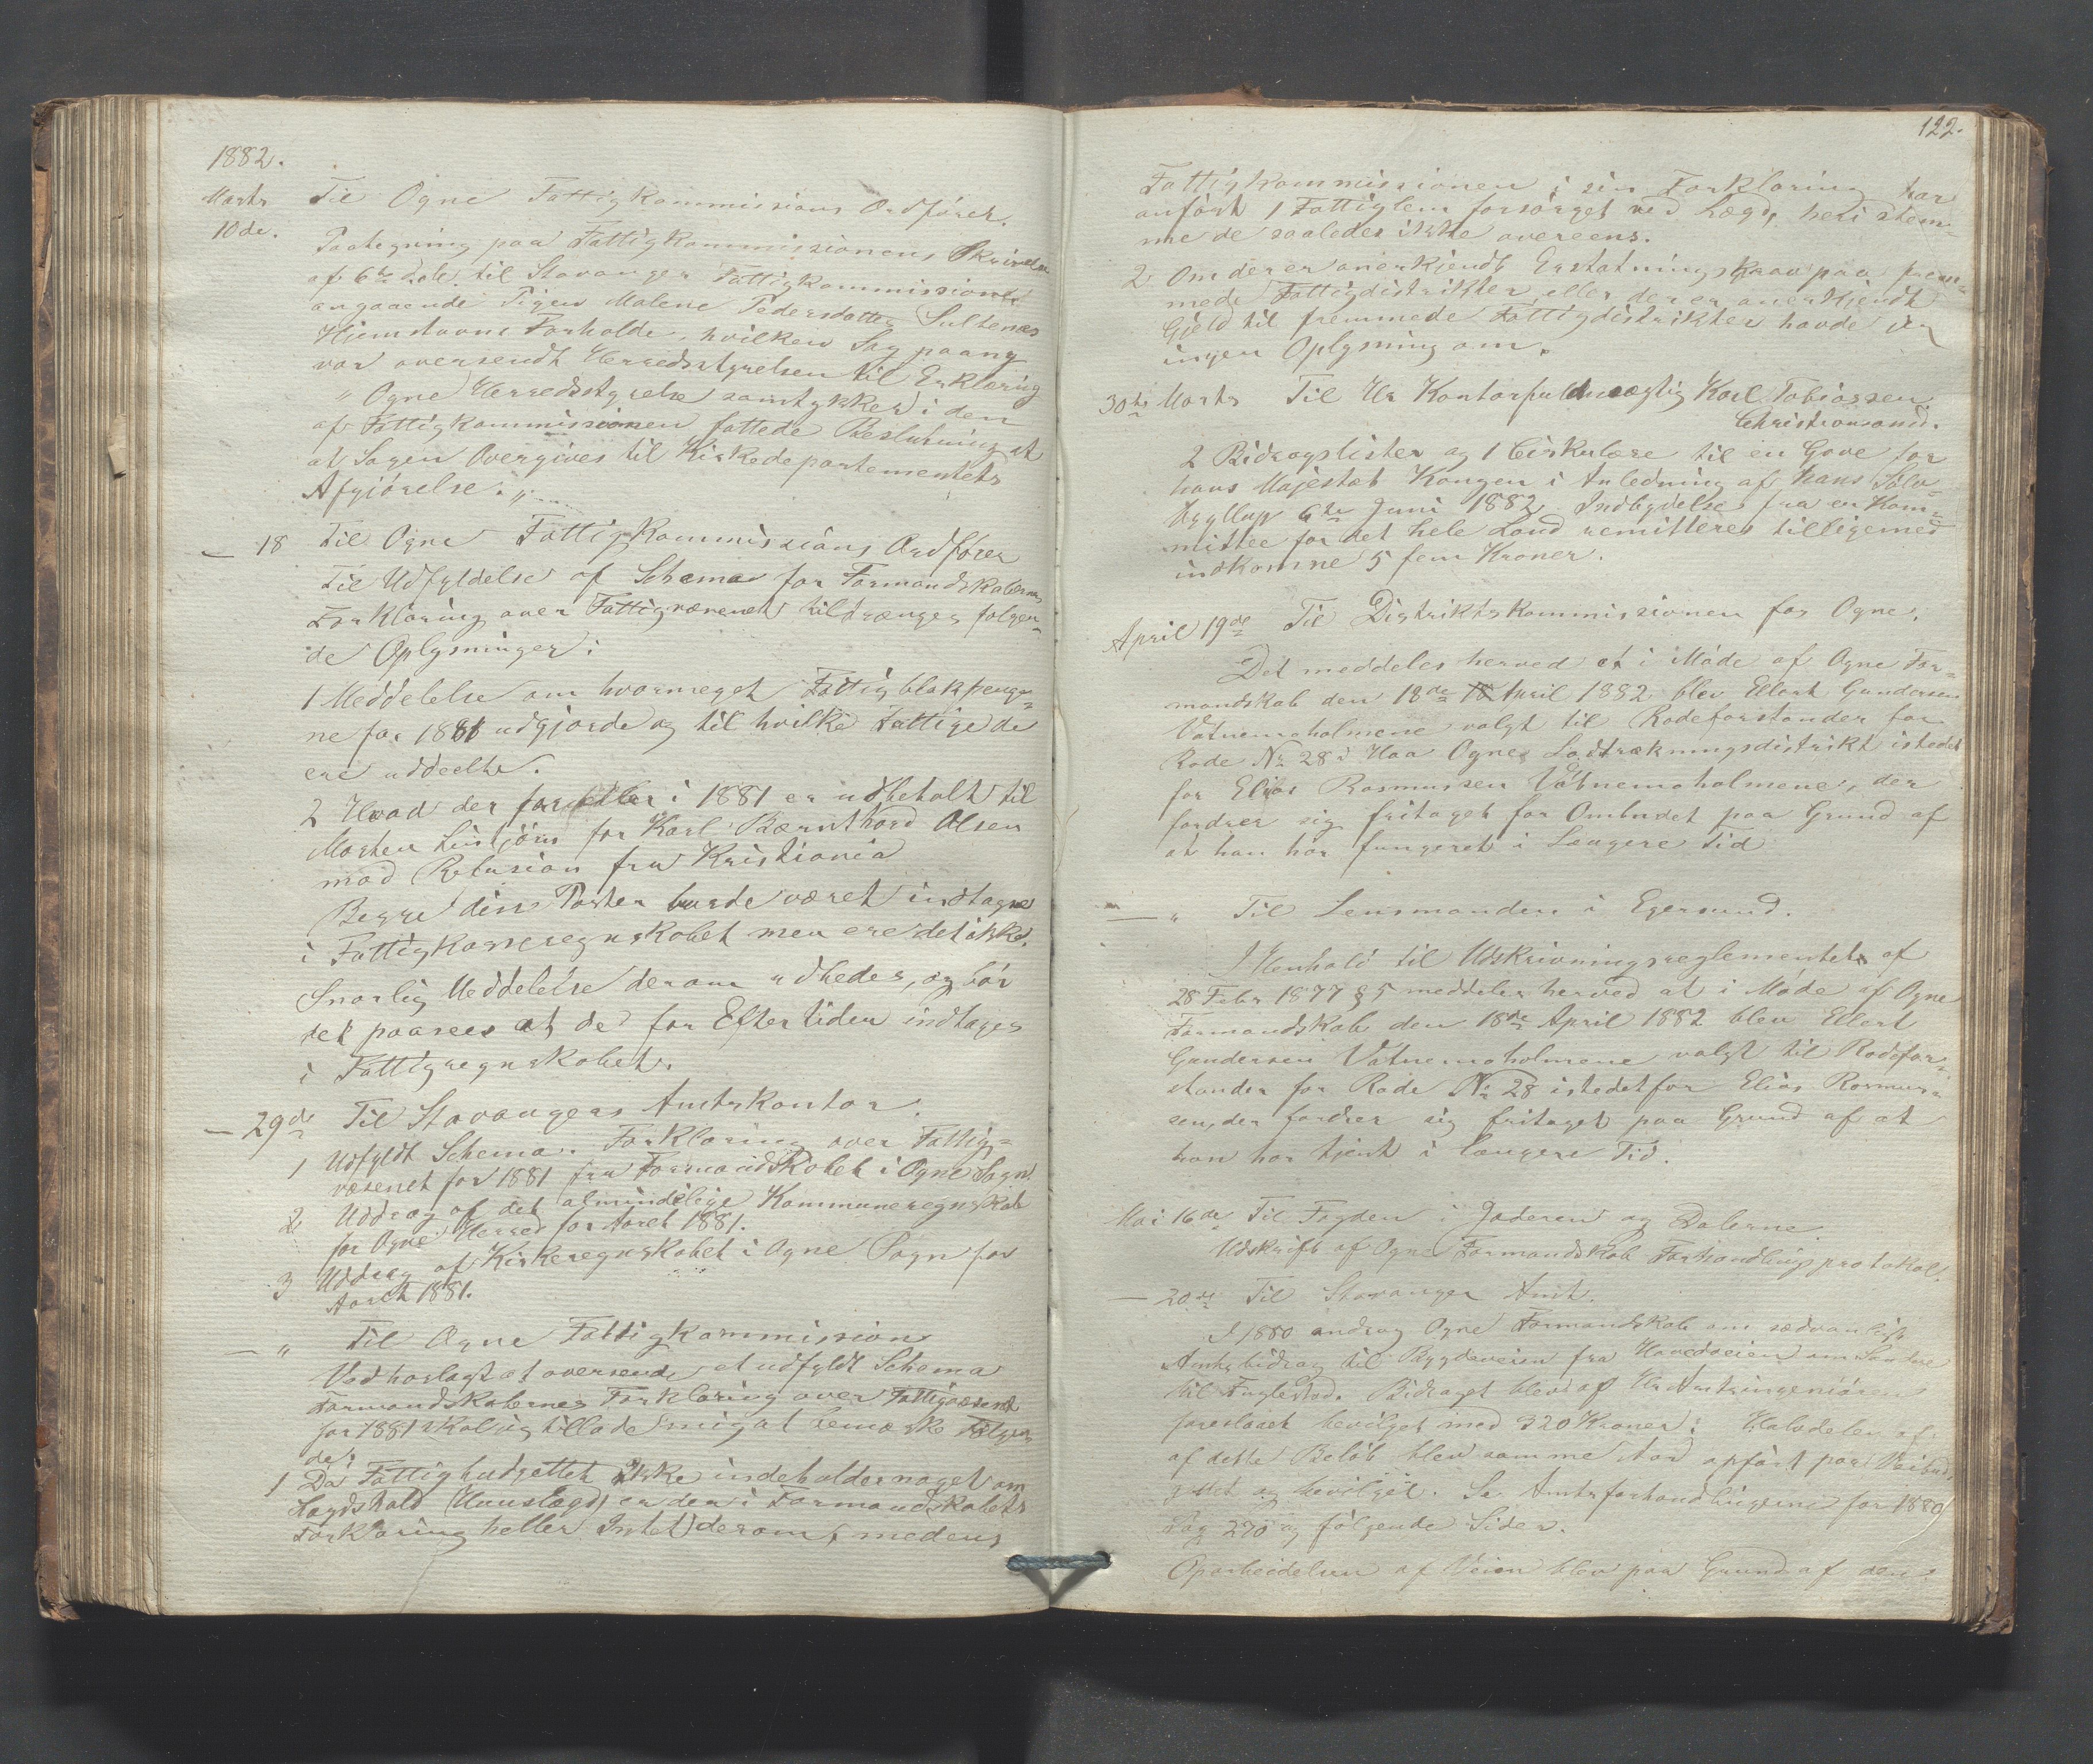 1882.
Marts Til Ogne Fattigkommissions Ordfører.
10de. Paategning paa Fattigkommissionens Skrivelse
af 6te ds. til Stavanger Fattigkommission
angaaende Pigen Malene Pedersdatter Sultenæs
Hjemstavns Forholde, hvilken Sag paany
var oversendt Herredsstyrelsen til Erklæring
" Ogne Herredsstyrelse samtykker i den
af Fattigkommissionen fattede Beslutning at
at Sagen Overgives til Kirkedepartementets
Afgjörelse. "
— 18 Til Ogne Fattigkommissions Ordfører
Til Udfyldelse af Schema for Formandskabernes
Forklaring over Fattigvæsenet tiltrænges følgen-
de Oplysninger:
1 Meddelelse om hvormeget Fattigblokpenge-
ne for 1881 udgjorde og til hvilke Fattige de
ere uddeelte.
2 Hvad der i 1881 er udbetalt til
Morten for Karl Bernthard Olsen
mod Refusion fra Kristiania
Begge disse Poster burde været indtagne
i Fattigkasseregnskabet men ere det ikke.
Snarlig Meddelelse derom udbedes, og bör
det paasees at de for Eftertiden indtages
i Fattigregnskabet.
— 29de Til Stavangers Amtskontor.
1 Udfyldt Schema. Forklaring over Fattig-
væsenet for 1881 fra Formandskabet i Ogne Sogn.
2 Uddrag af det almindelige Kommuneregnskab
for Ogne Herred for Aaret 1881.
3 Uddrag af Kirkeregnskabet i Ogne Sogn for
Aaret 1881.
— " Til Ogne Fattigkommission
Ved hoslagt at oversende et udfyldt Schema
Formandskabernes Forklaring over Fattigvæsenet
for 1881 skal jeg tillade mig at bemærke Følgen-
de:
1 Da Fattigbudgettet Ikke indeholder noget om
Lægdshold (Huuslægd) er der i Formandskabets
Forklaring heller Intet derom, medens
122.
Fattigkommissionen i sin Forklaring har
anført 1 Fattiglem forsörget ved Lægd, heri stem-
mede saaledes ikke overeens.
2 Om der er anerkjendt Erstatningskrav paa frem-
mede Fattigdistrikter eller der er anerkjendt
Gjeld til fremmede Fattigdistrikter havde jeg
ingen Oplysning om.
30te Marts Til Hr Kontorfuldmægtig Karl Tobiassen
Christiansand.
2 Bidragslister og 1 Cirkulære til en Gave for
hans Majestæt Kongen i Anledning af hans Sölv-
bryllup 6te Juni 1882 Indbydelse fra en Kom-
mittee for det hele Land remitteres tilligemed
indkomne 5 fem Kroner.
April 19de Til Distriktskommissionen for Ogne.
Det meddeles herved at i Möde af Ogne For-
mandskab den 18de April 1882 blev Ellert Gundersen
Vatnemoholmene valgt til Rodeforstander for
Rode No 28 i Haa Ognes Lodtrækningsdistrikt istedet
for Elias Rasmussen Vatnemoholmene, der
fordrer sig fritaget for Ombudet paa Grund af
at han har fungeret i Længere Tid
— " Til Lensmanden i Egersund.
I Henhold til Udskrivningsreglementet af
28 Febr 1877 § 5 meddeles herved at i Möde af Ogne
Formandskab den 18de April 1882 blev Ellert
Gundersen Vatnemoholmene valgt til Rodefor-
stander for Rode No 28 istedetfor Elias Rasmus-
sen, der fordrer sig fritaget paa Grund af at
han har tjent i længere Tid.
Mai 16de Til Fogden i Jæderen og Dalerne.
Udskrift af Ogne Formandskab Forhandlingsprotokol.
— 20de Til Stavanger Amt.
I 1880 androg Ogne Formandskab om sædvanligt
Amtsbidrag til Bygdeveien fra Hovedveien
til Fuglestad. Bidraget blev af Hr Amtsingeniören
foreslaaet bevilget med 320 Kroner: Halvdelen af
af dette Belöb blev samme Aar opfört paa Veibud-
gettet og bevilget. Se Amtsforhandlingerne for 1880
Pag 270 og følgende Sider.
Oparbeidelsen af Veien blev paa Grund af den